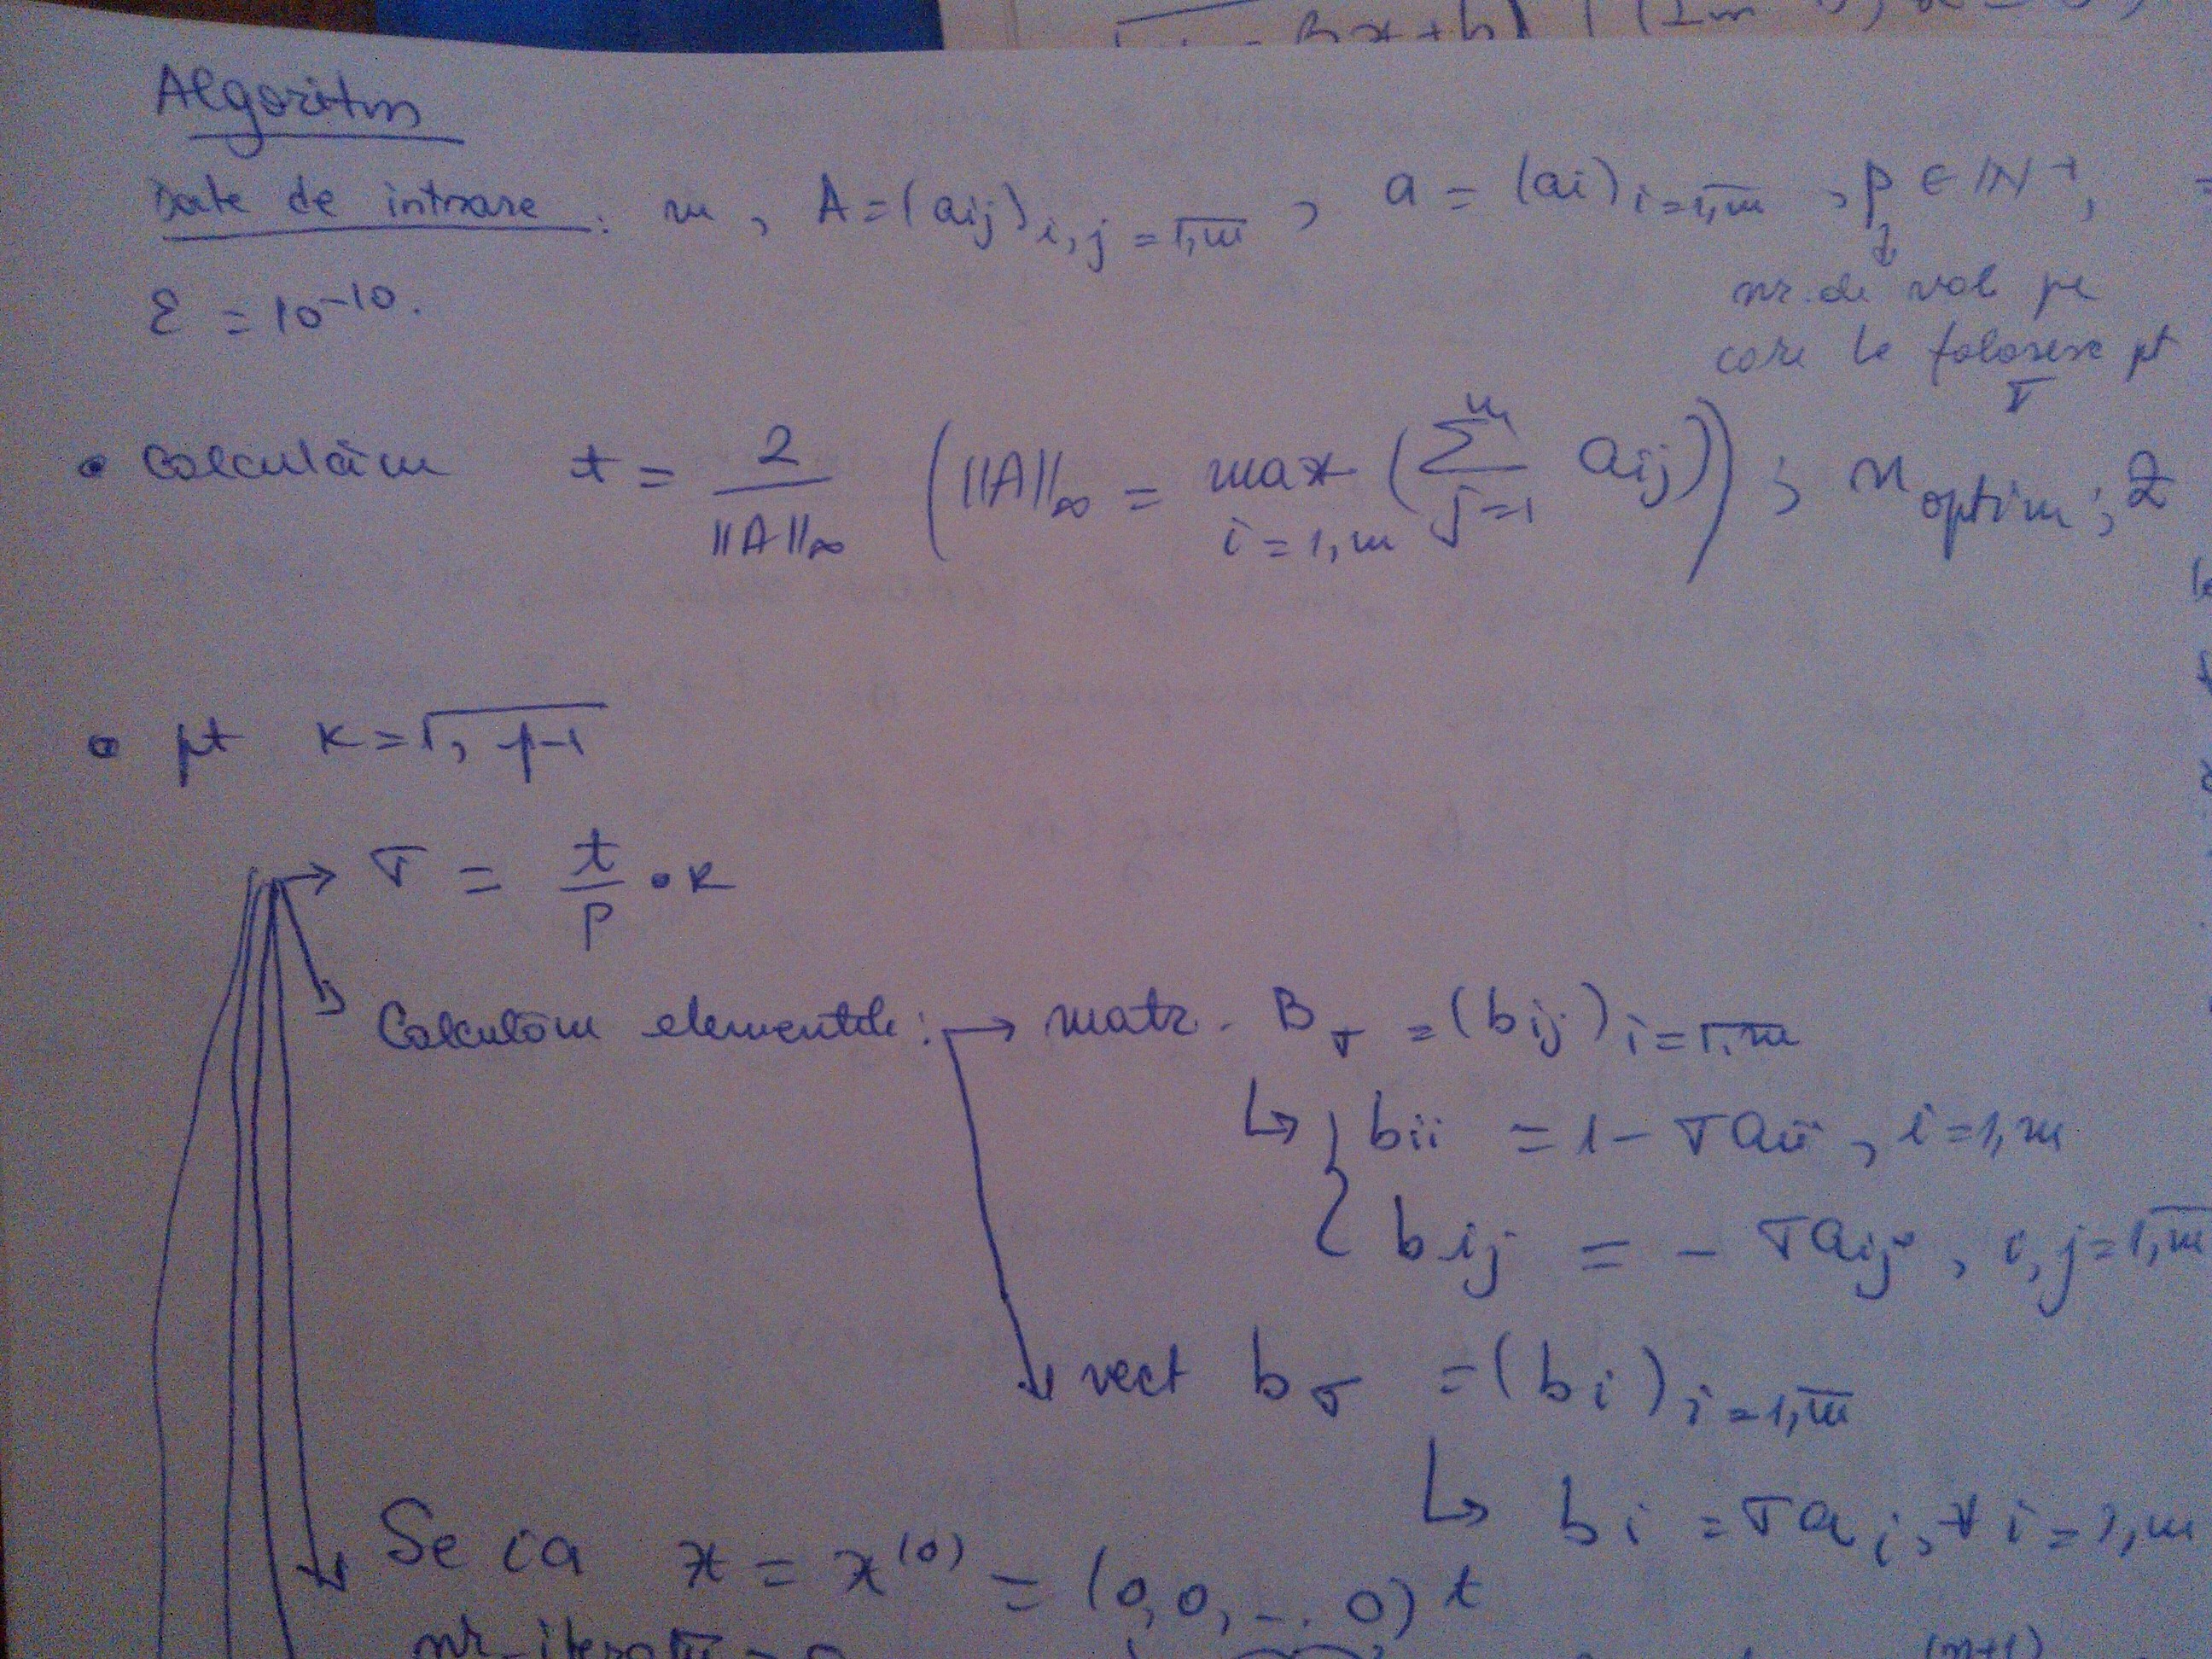 Bx+b
Algoritm
Date de intrare: m, A=(aij)i,j=1,m̅, a=(ai)i=1,m̅, p∈IN⁺,
ε=10⁻¹⁰.
nr. de val pe
care le folosesc pt
σ
• Calculăm t = 2/||A||∞ (||A||∞ = max i=1,m (∑ j=1 m aij)); n optim; 2
• pt k=1,p-1
→ σ = t/p • k
Calculăm elementele: → matr. Bσ = (bij)i=1,m̅
↳ { bii = 1 - σaii, i=1,m
bij = - σaij, i,j=1,m̅
vect bσ = (bi)i=1,m̅
↳ bi = σai, ∀i=1,m
Se ia x = x⁽⁰⁾ = (0,0,... 0)ᵗ
nr_iteratii = 0
(n+1)